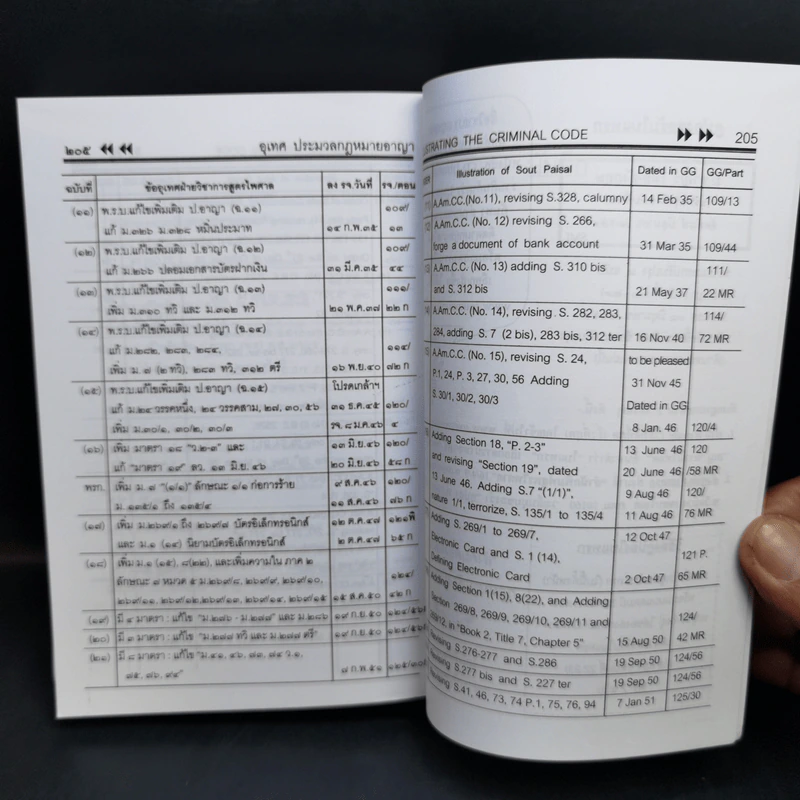 ๒๐๕ อุเทศ ประมวลกฎหมายอาญา
ฉบับที่ ข้ออุเทศฝ่ายวิชาการสูตรไพศาล ลง รจ.วันที่ รจ/ตอน
(๑๑) พ.ร.บ.แก้ไขเพิ่มเติม ป.อาญา (ฉ.๑๑) ๑๐๙/
แก้ ม.๓๒๖ ม.๓๒๘ หมิ่นประมาท ๑๔ ก.พ.๓๕ ๑๓
(๑๒) พ.ร.บ.แก้ไขเพิ่มเติม ป.อาญา (ฉ.๑๒) ๑๐๙/
แก้ ม.๒๖๖ ปลอมเอกสารบัตรฝากเงิน ๓๑ มี.ค.๓๕ ๔๔
(๑๓) พ.ร.บ.แก้ไขเพิ่มเติม ป.อาญา (ฉ.๑๓) ๑๑๑/
เพิ่ม ม.๓๑๐ ทวิ และ ม.๓๑๒ ทวิ ๒๑ พ.ค.๓๗ ๒๒ ก
(๑๔) พ.ร.บ.แก้ไขเพิ่มเติม ป.อาญา (ฉ.๑๔)
แก้ ม.๒๘๒, ๒๘๓, ๒๘๔, ๑๑๔/
เพิ่ม ม.๗ (๒ ทวิ), ๒๘๓ ทวิ, ๓๑๒ ตรี ๑๖ พ.ย.๔๐ ๗๒ ก
(๑๕) พ.ร.บ.แก้ไขเพิ่มเติม ป.อาญา (ฉ.๑๕) โปรดเกล้าฯ
แก้ ม.๒๔ วรรคหนึ่ง, ๒๔ วรรคสาม, ๒๗, ๓๐, ๕๖ ๓๑ ธ.ค.๔๕ ๑๒๐/
เพิ่ม ม.๓๐/๑, ๓๐/๒, ๓๐/๓ รจ.๘ ม.ค.๔๖ ๔
(๑๖) เพิ่ม มาตรา ๑๘ "ว.๒-๓" และ ๑๓ มิ.ย.๔๖ ๑๒๐/
แก้ "มาตรา ๑๙" ลว. ๑๓ มิ.ย.๔๖ ๒๐ มิ.ย.๔๖ ๕๘ ก
พรก. เพิ่ม ม.๗ "(๑/๑)" ลักษณะ ๑/๑ ก่อการร้าย ๙ ส.ค.๔๖ ๑๒๐/
ม.๑๓๕/๑ ถึง ๑๓๕/๔ ๑๑ ส.ค.๔๖ ๗๖ ก
(๑๗) เพิ่ม ม.๒๖๙/๑ ถึง ๒๖๙/๗ บัตรอิเล็กทรอนิกส์ ๑๒ ต.ค.๔๗ ๑๒๑พิ
และ ม.๑ (๑๔) นิยามบัตรอิเล็กทรอนิกส์ ๒ ต.ค.๔๗ ๖๕ ก
(๑๘) เพิ่ม ม.๑ (๑๕), ๘(๒๒), และเพิ่มความใน ภาค ๒
ลักษณะ ๗ หมวด ๕ ม.๒๖๙/๘, ๒๖๙/๙, ๒๖๙/๑๐, ๑๒๔/
๒๖๙/๑๑, ๒๖๙/๑๒,๒๖๙/๑๓, ๒๖๙/๑๔, ๒๖๙/๑๕ ๑๕ ส.ค.๕๐ ๔๒ ก
(๑๙) มี ๔ มาตรา : แก้ไข "ม.๒๗๖ - ม.๒๗๗" และ ม.๒๘๖ ๑๙ ก.ย.๕๐ ๑๒๔/๕๖
(๒๐) มี ๓ มาตรา : แก้ไข "ม.๒๗๗ ทวิ และ ม.๒๗๗ ตรี" ๑๙ ก.ย.๕๐ ๑๒๔/๕๖
(๒๑) มี ๘ มาตรา : แก้ไข "ม.๔๑, ๔๖, ๗๓, ๗๔ ว.๑,
๗๕, ๗๖, ๙๔" ๗ ก.พ.๕๑
STRATING THE CRIMINAL CODE 205
Illustration of Sout Paisal Dated in GG GG/Part
A.Am.CC.(No.11), revising S.328, calumny 14 Feb 35 109/13
A.Am.C.C. (No. 12) revising S. 266,
forge a document of bank account 31 Mar 35 109/44
A.Am.C.C. (No. 13) adding S. 310 bis 111/
and S. 312 bis 21 May 37 22 MR
A.Am.C.C. (No. 14), revising S. 282, 283, 114/
284, adding S. 7 (2 bis), 283 bis, 312 ter 16 Nov 40 72 MR
A.Am.C.C. (No. 15), revising S. 24, to be pleased
P.1, 24, P. 3, 27, 30, 56 Adding 31 Nov 45
S. 30/1, 30/2, 30/3 Dated in GG
8 Jan. 46 120/4
Adding Section 18, "P. 2-3" 13 June 46 120
and revising "Section 19", dated 20 June 46 /58 MR
13 June 46. Adding S.7 "(1/1)", 9 Aug 46 120/
nature 1/1, terrorize, S. 135/1 to 135/4 11 Aug 46 76 MR
Adding S. 269/1 to 269/7, 12 Oct 47
Electronic Card and S. 1 (14), 121 P.
Defining Electronic Card 2 Oct 47 65 MR
Adding Section 1(15), 8(22), and Adding
Section 269/8, 269/9, 269/10, 269/11 and 124/
269/12, in "Book 2, Title 7, Chapter 5" 15 Aug 50 42 MR
Revising S.276-277 and S.286 19 Sep 50 124/56
Revising S.277 bis and S. 227 ter 19 Sep 50 124/56
Revising S.41, 46, 73, 74 P.1, 75, 76, 94 7 Jan 51 125/30